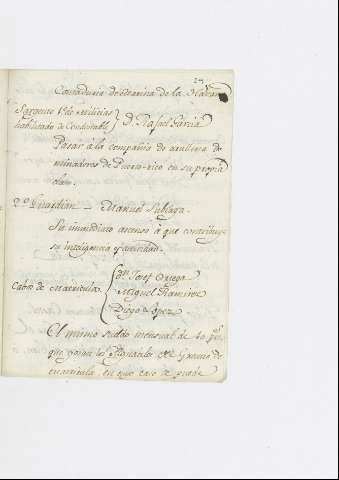 27
Contaduria de Marina de la Havana
Sargento 1º de Milicias
habilitado de Condestable } D. Rafael Garcia
Pasar á la compañia de auxilio
minadores de Puerto-rico en su propria
clase.
2º Guardian — Manuel Subiaga.
Su inmediato ascenso á que contribuye
su inteligencia y actividad.
Cabos de matricula { Dn Josef Ortega
Miguel Ramirez
Diogo Lopez
El mismo sueldo mensual de 40 ps
que gozan los
matricula, en cuyo caso se puede